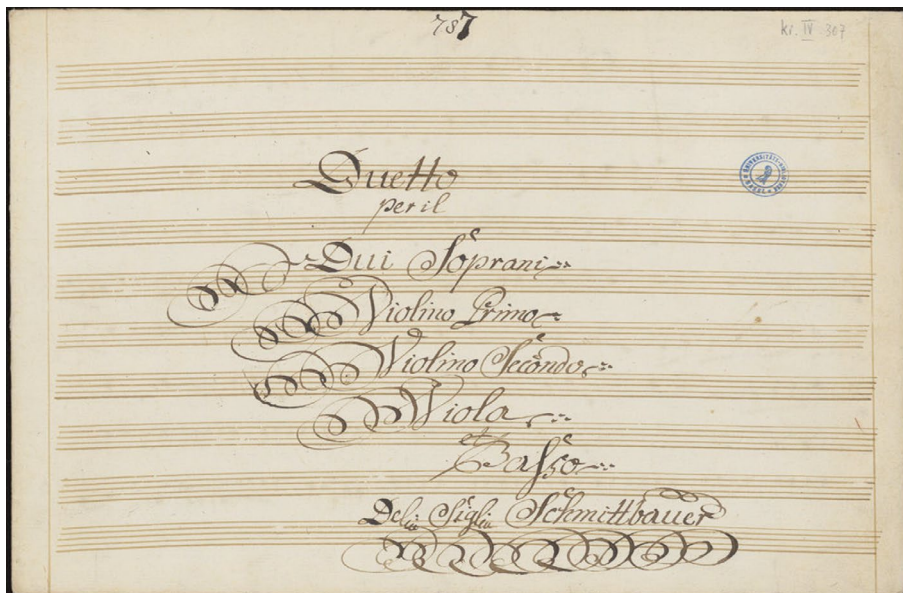 787
kr. IV. 307
Duetto
per il
Dui Soprani
Violino Primo
Violino Secondo
Viola
et
Basso
Schmittbauer